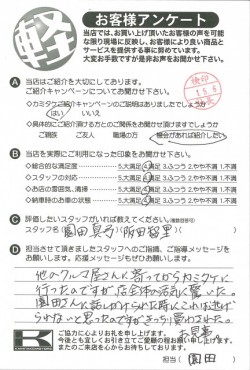 軽
お客様アンケート
当店では、お買い上げ頂いたお客様の声を可能
な限り現場に反映し、お客様により良い商品と
サービスを提供する事に努めています。
大変お手数ですが是非お声をお聞かせ下さい。
A 当店はご紹介を大切にしております。
ご紹介キャンペーンについてお聞かせ下さい。
◇カミタケご紹介キャンペーンのご説明はありましたでしょうか
はい いいえ
◇具体的にご紹介頂ける方とのご関係をお聞かせ頂けますでしょうか
ご親族 ご友人 職場の方 機会があれば紹介したい
B 当店を実際にご利用になった印象をお聞かせ下さい。
◇総合的な満足度 5.大満足 4.満足 3.ふつう 2.やや不満 1.不満
◇スタッフの対応 5.大満足 4.満足 3.ふつう 2.やや不満 1.不満
◇お店の雰囲気、清掃 5.大満足 4.満足 3.ふつう 2.やや不満 1.不満
◇納車時のお車の状態 5.大満足 4.満足 3.ふつう 2.やや不満 1.不満
C 評価したいスタッフがいれば教えてください。(複数回答可)
スタッフ名( 園田
D 担当させて頂きましたスタッフへのご指摘、ご指導メッセージを
お願いします。応援メッセージもぜひお願いします。
他のクルマ屋さんに寄ってからカミタケに
行ったのですが店全体の活気に驚いた。
園田さんに話しかけられた時、これは逃げ
られないと思ったのですがきっちり買わされた。
お見事
ご協力に心よりお礼を申し上げます。
今後とも宜しくお引き立てご愛顧の程お願い申し上げます。
またのご来店を心からお待ちしております。
担当( 園田 )